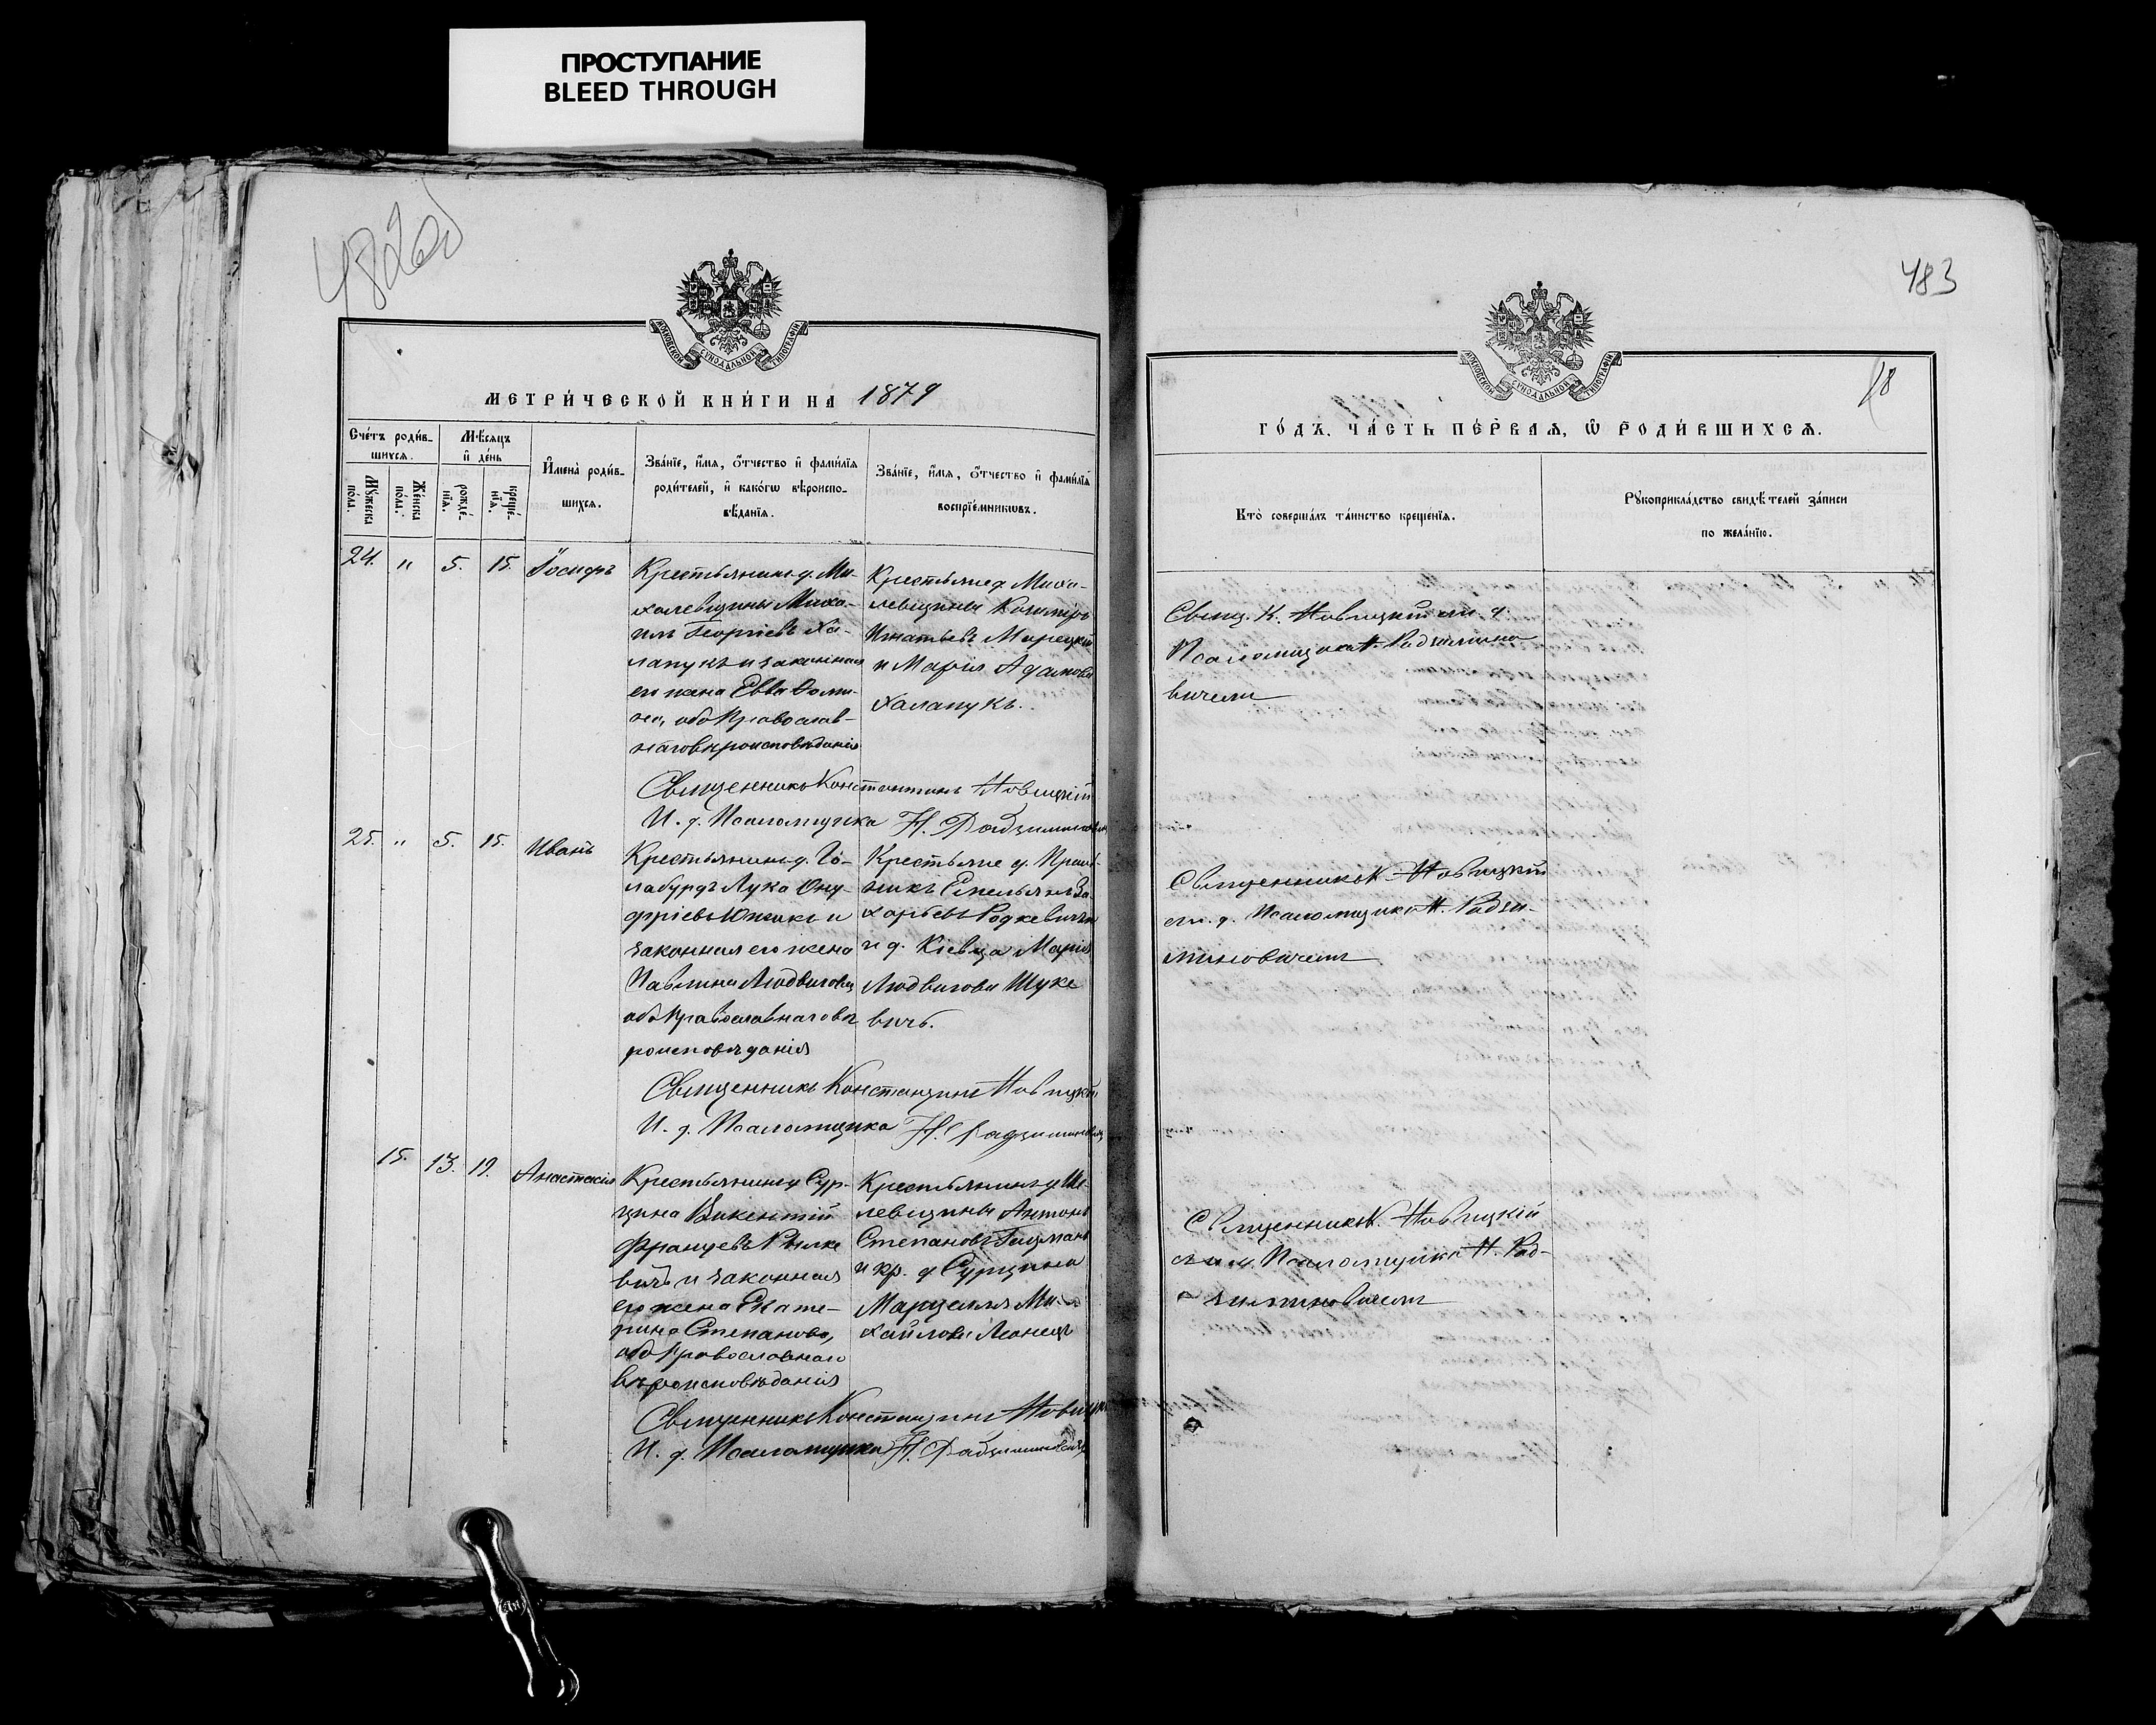 ПРОСТУПАНИЕ
BLEED THROUGH
482об
483
18
МОСКОВСКОЙ СУНОДАЛЬНОЙ ТИПОГРАФІИ
МЕТРИ́ЧЕСКОЙ КНИ́ГИ НА 1879
Сче́тъ роди́в-
шихся.
Мѣ́сяцъ
и҆ де́нь
Мꙋ́жеска
по́ла.
Же́нска
по́ла.
рожде́-
нїѧ.
креще́-
нїѧ.
И҆мена̀ роди́в-
шихсѧ.
Зва́нїе, и҆́мѧ, ѻ҆́тчество и҆ фами́лїѧ
роди́телей, и҆ како́гѡ вѣроиспо-
вѣ́данїѧ.
Зва́нїе, и҆́мѧ, ѻ҆́тчество и҆ фами́лїѧ
воспрїе́мникѡвъ.
24. " 5. 15. Іосифъ
Крестьянинъ д. Ми-
халевщины Миха-
илъ Георгіевъ Ха-
лапукъ и законная
его жена Евва Ѳоми-
на, оба Православ-
наго вѣроисповѣданія
Крестьяне д. Миха-
левщины
Игнатьевъ Марецкій
и Марія Адамова
Халапукъ.
Священникъ Константинъ Новицкій
И. д. Псаломщика Н. Радзиминовичъ
25. " 5. 15. Иванъ
Крестьянинъ д. Го-
лабурдъ Лука Ону-
фріевъ и
законная его жена
Павлина Людвигова
оба Православнаго вѣ-
роисповѣданія
Крестьяне д.
никъ Емельянъ За-
харьевъ Родкевичъ
и д. Кіевца Марія
Людвигова Шуке
вичъ.
Священникъ Константинъ Новицкій
И. д. Псаломщика Н. Радзиминовичъ
15. 13. 19. Анастасія
Крестьянинъ д. Сур-
щина Викентій
Францевъ Рымке
вичъ и законная
его жена Екате-
рина Степанова,
оба Православнаго
вѣроисповѣданія
Крестьянинъ д.
левщины Антонъ
Степановъ Гицманъ
и кр. д. Сурщина
Марцелля Ми-
хайлова
Священникъ Константинъ Новицкій
И. д. Псаломщика Н. Радзиминовичъ
МОСКОВСКОЙ СУНОДАЛЬНОЙ ТИПОГРАФІИ
ГО́ДЪ, ЧА́СТЬ ПЕ́РВАѦ, Ѡ҆ РОДИ́ВШИХСѦ.
Кто̀ соверша́лъ та́инство креще́нїѧ.
Рꙋкоприкла́дство свидѣ́телей за́писи
по жела́нїю.
Свящ. К. Новицкій съ и. д.
Псаломщика Н. Радзимино
вичемъ
Священникъ К. Новицкій
съ и. д. Псаломщика Н. Радзи-
миновичемъ
Священникъ К. Новицкій
съ и. д. Псаломщика Н. Рад-
зиминовичемъ